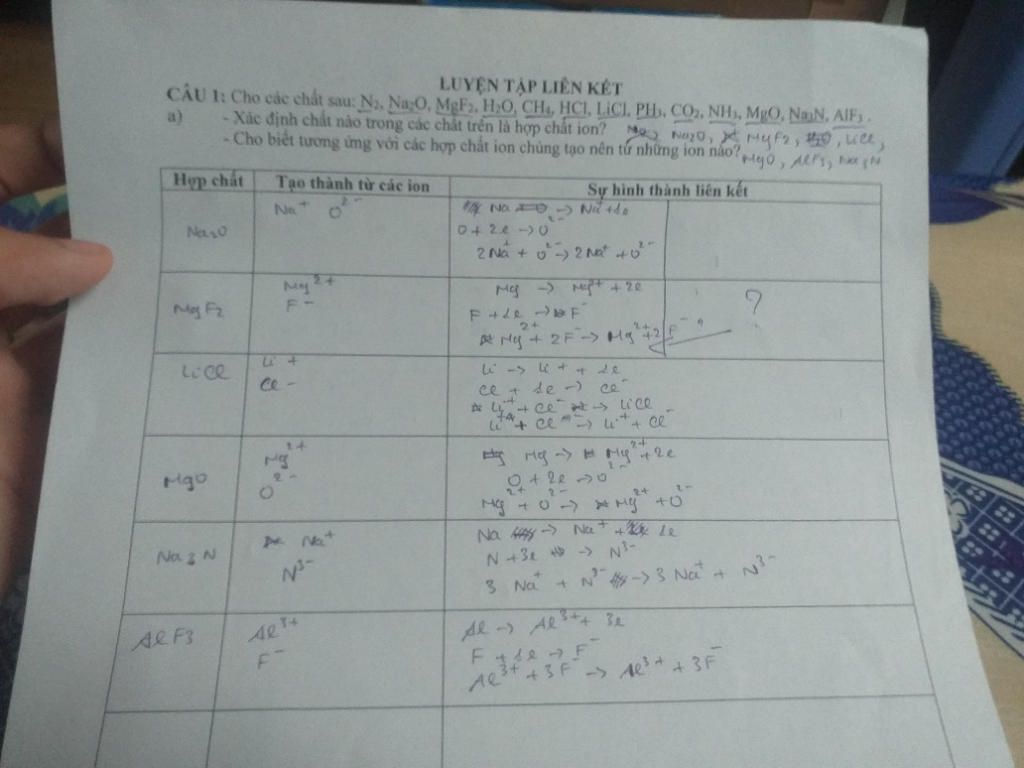 LUYỆN TẬP LIÊN KẾT
CÂU 1: Cho các chất sau: N₂, Na₂O, MgF₂, H₂O, CH₄, HCl, LiCl, PH₃, CO₂, NH₃, MgO, Na₃N, AlF₃ .
a) - Xác định chất nào trong các chất trên là hợp chất ion? Na₂O, MgF₂, LiCl,
- Cho biết tương ứng với các hợp chất ion chúng tạo nên từ những ion nào? MgO, AlF₃, Na₃N
Hợp chất Tạo thành từ các ion Sự hình thành liên kết
Na₂O
Na⁺ O²⁻
Na → Na⁺ + 1e
O + 2e → O²⁻
2Na⁺ + O²⁻ → 2Na⁺ + O²⁻
MgF₂
Mg²⁺
F⁻
Mg → Mg²⁺ + 2e
F + 1e → F⁻
Mg²⁺ + 2F⁻ → Mg²⁺ + 2F⁻
?
LiCl
Li⁺
Cl⁻
Li → Li⁺ + 1e
Cl + 1e → Cl⁻
Li⁺ + Cl⁻ → LiCl
Li⁺ + Cl⁻ → Li⁺ + Cl⁻
MgO
Mg²⁺
O²⁻
Mg → Mg²⁺ + 2e
O + 2e → O²⁻
Mg²⁺ + O²⁻ → Mg²⁺ + O²⁻
Na₃N
Na⁺
N³⁻
Na → Na⁺ + 1e
N + 3e → N³⁻
3 Na⁺ + N³⁻ → 3 Na⁺ + N³⁻
AlF3
Al³⁺
F⁻
Al → Al³⁺ + 3e
F + 1e → F⁻
Al³⁺ + 3F⁻ → Al³⁺ + 3F⁻